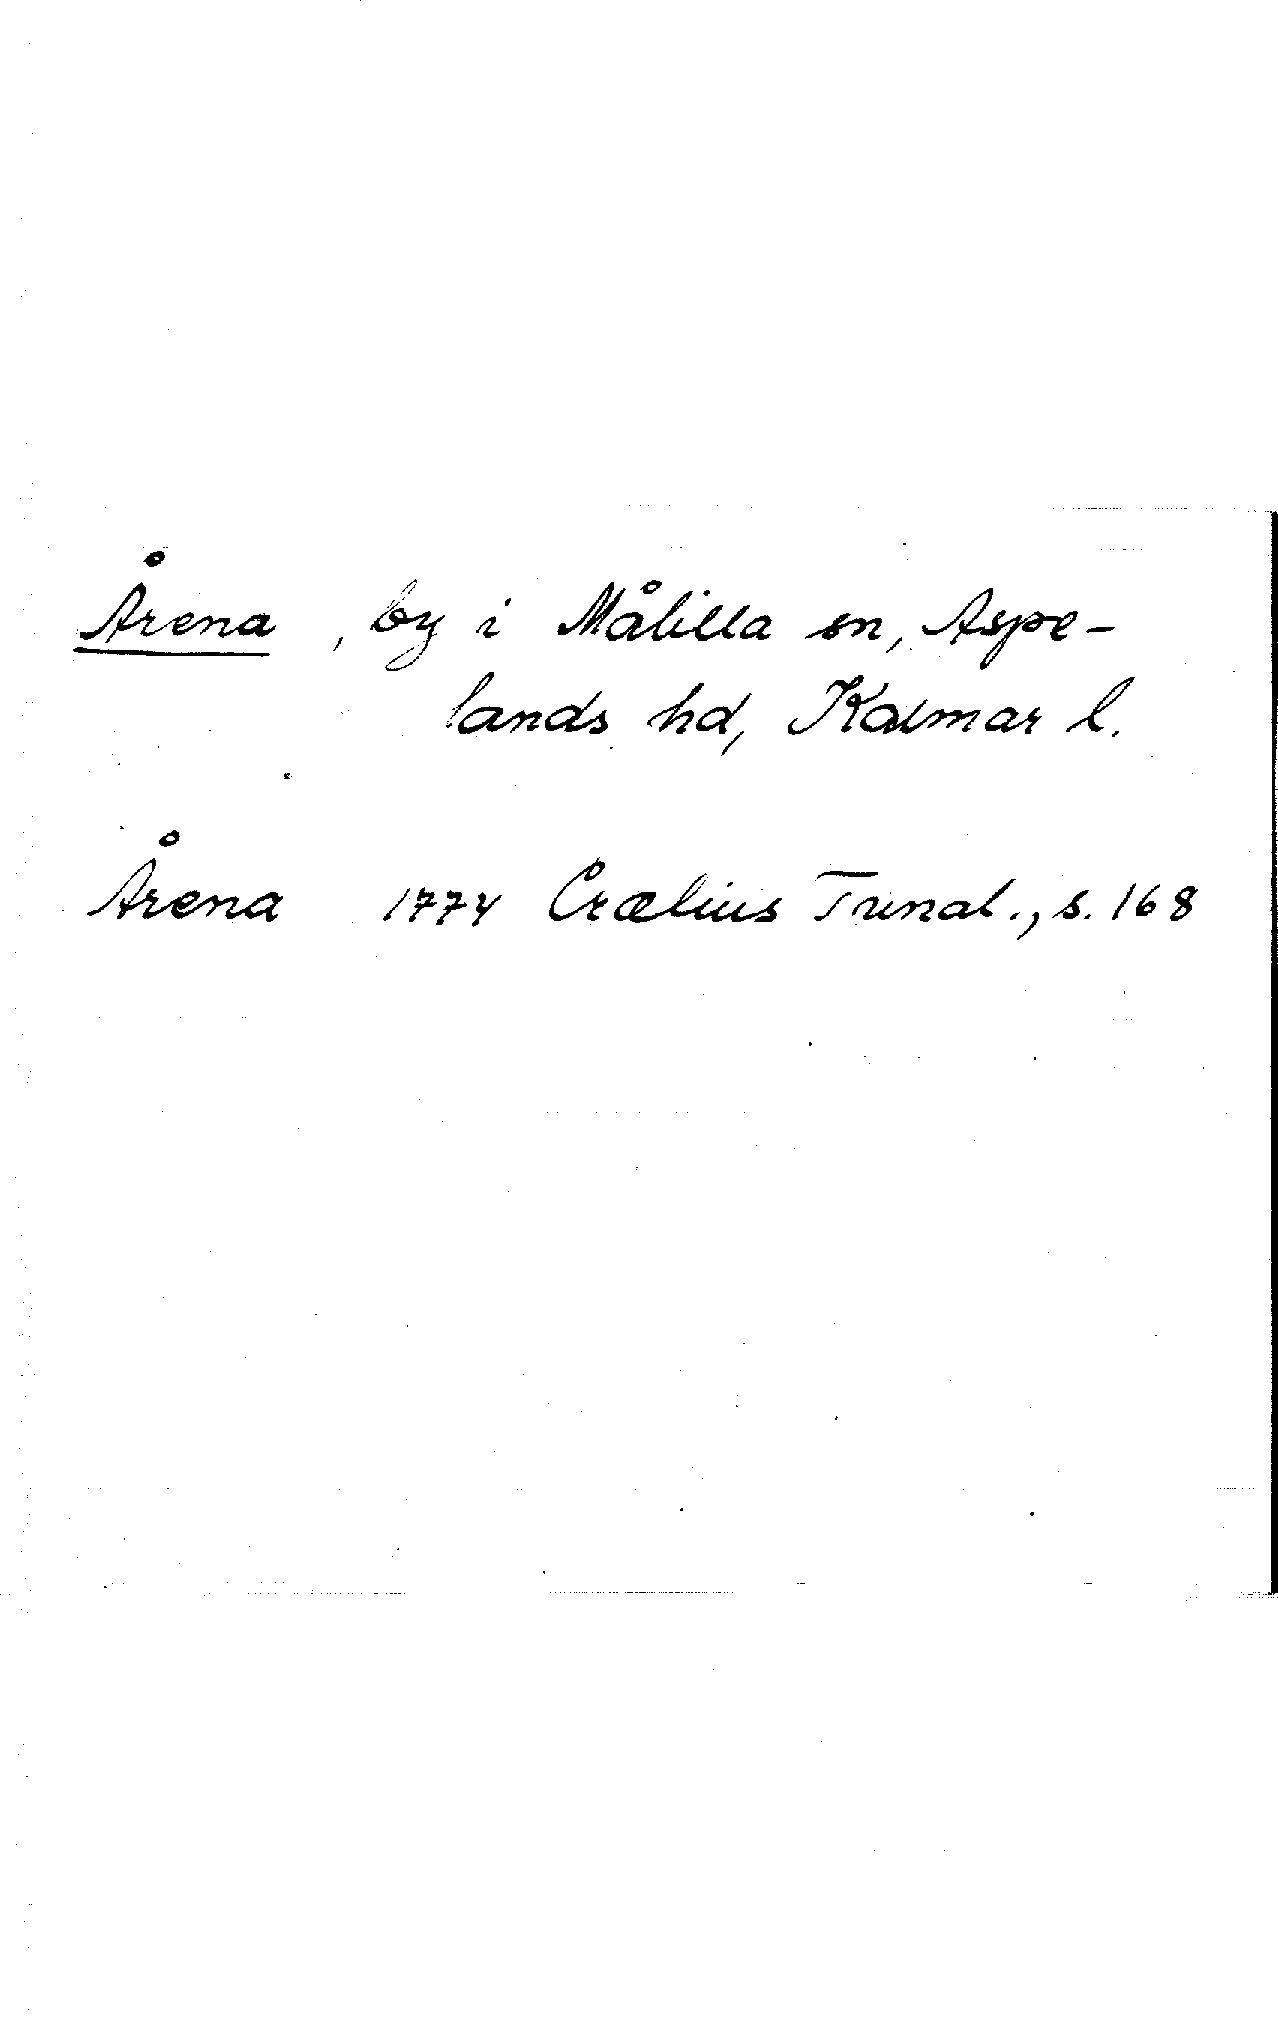 Årena, by i Målilla sn, Aspe-
lands hd, Kalmar l.
Årena 1774 Crælius Tunal., s. 168